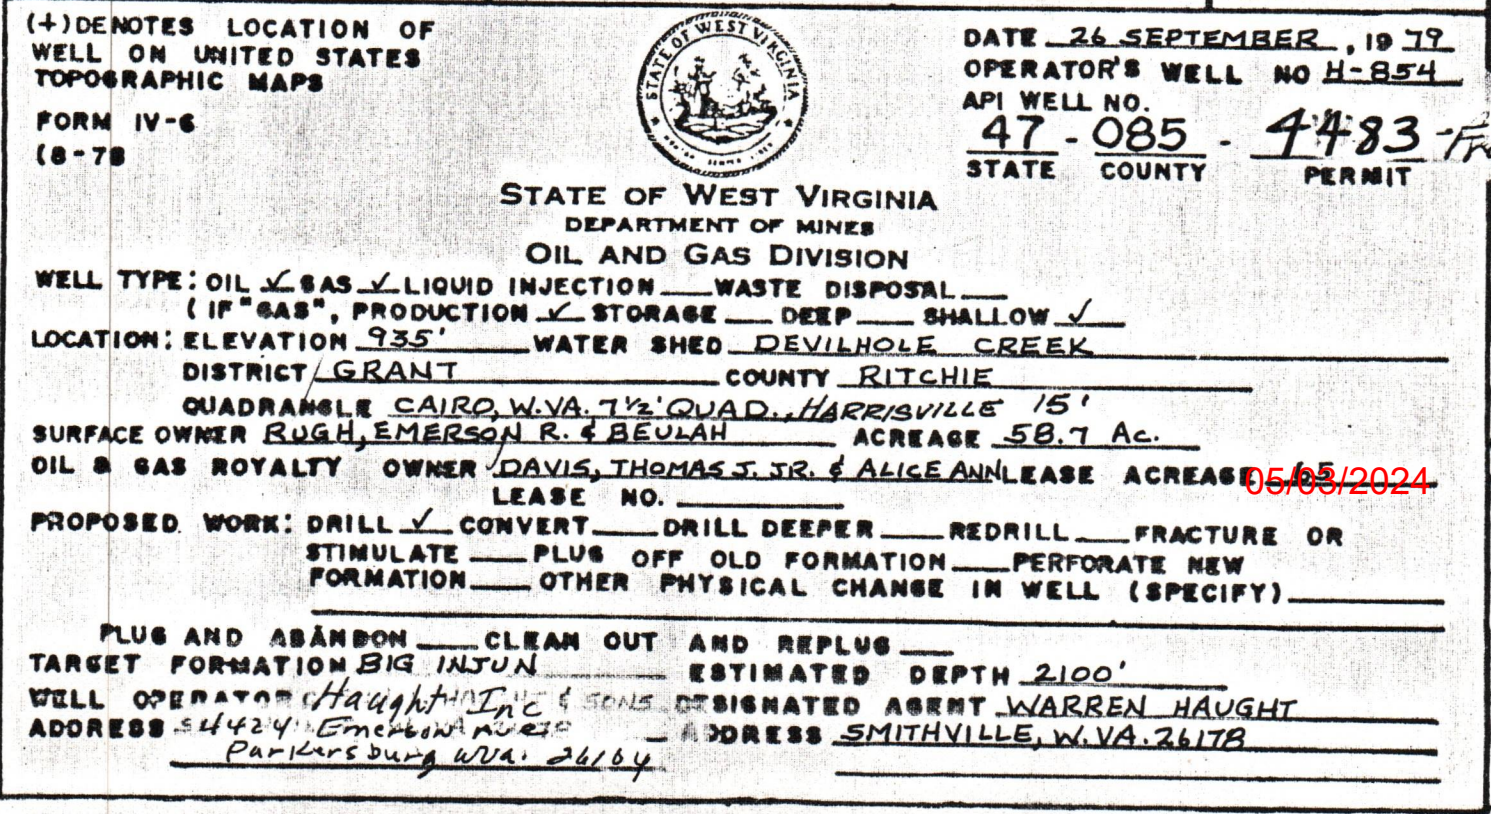 (+) DENOTES LOCATION OF
WELL ON UNITED STATES
TOPOGRAPHIC MAPS
FORM IV-6
(8-78
STATE OF WEST VIRGINIA
DATE 26 SEPTEMBER, 1979
OPERATOR'S WELL NO H-854
API WELL NO.
47 - 085 - 4483
STATE COUNTY PERMIT
STATE OF WEST VIRGINIA
DEPARTMENT OF MINES
OIL AND GAS DIVISION
WELL TYPE: OIL ✓ GAS ✓ LIQUID INJECTION ___ WASTE DISPOSAL ___
(IF "GAS", PRODUCTION ✓ STORAGE ___ DEEP ___ SHALLOW ✓
LOCATION: ELEVATION 935' WATER SHED DEVILHOLE CREEK
DISTRICT GRANT COUNTY RITCHIE
QUADRANGLE CAIRO, W.VA. 7 1/2' QUAD., HARRISVILLE 15'
SURFACE OWNER RUGH, EMERSON R. & BEULAH ACREAGE 58.7 Ac.
OIL & GAS ROYALTY OWNER DAVIS, THOMAS J. JR. & ALICE ANN LEASE ACREAGE 65
05/03/2024
LEASE NO. ___
PROPOSED WORK: DRILL ✓ CONVERT ___ DRILL DEEPER ___ REDRILL ___ FRACTURE OR
STIMULATE ___ PLUG OFF OLD FORMATION ___ PERFORATE NEW
FORMATION ___ OTHER PHYSICAL CHANGE IN WELL (SPECIFY) ___
PLUG AND ABANDON ___ CLEAN OUT AND REPLUG ___
TARGET FORMATION BIG INJUN ESTIMATED DEPTH 2100'
WELL OPERATOR Haught Inc & SONS DESIGNATED AGENT WARREN HAUGHT
ADDRESS 4424 Emerson ADDRESS SMITHVILLE, W.VA. 26178
Parkersburg WVa. 26104